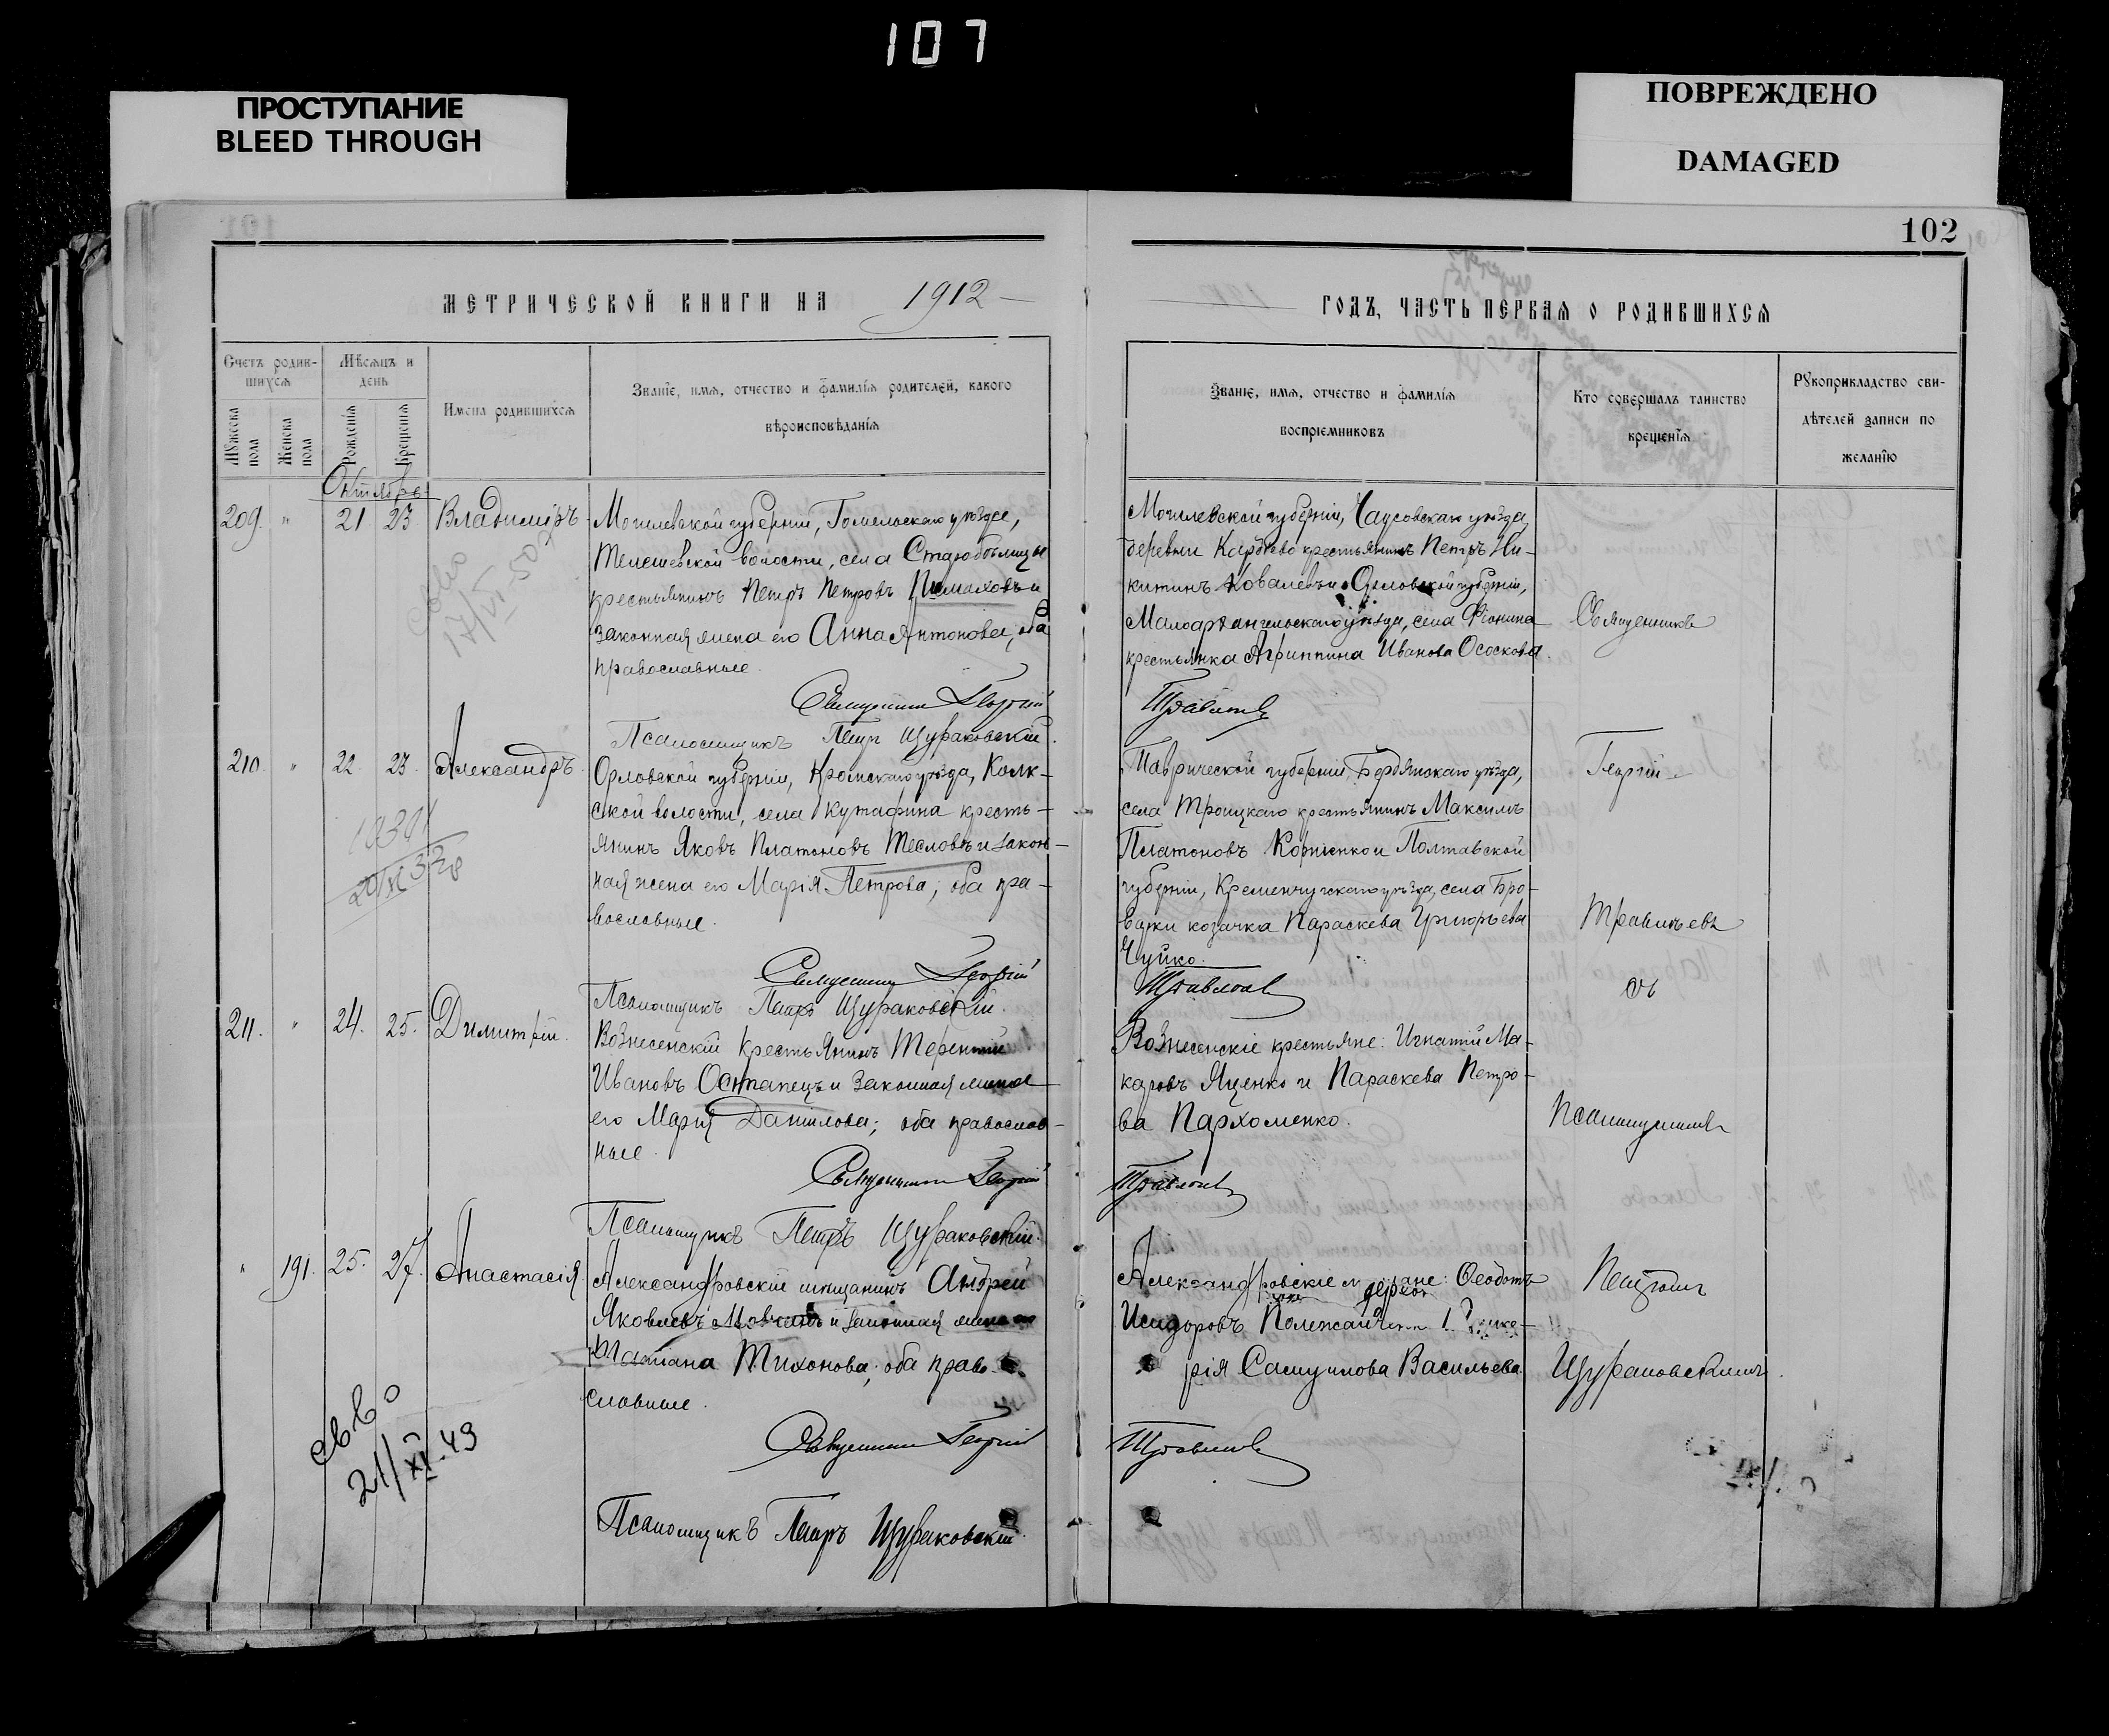 107
ПРОСТУПАНИЕ
BLEED THROUGH
ПОВРЕЖДЕНО
DAMAGED
102
МЕТРИЧЕСКОЙ КНИГИ НА 1912
ГОДЪ, ЧАСТЬ ПЕРВАЯ О РОДИВШИХСЯ
Счетъ родив-
шихся
Мужеска пола
Женска пола
Мѣсяцъ и
день
Рожденія
Крещенія
Имена родившихся
Званіе, имя, отчество и фамилія родителей, какого
вѣроисповѣданія
Званіе, имя, отчество и фамилія
воспріемниковъ
Кто совершалъ таинство
крещенія
Рукоприкладство сви-
дѣтелей записи по
желанію
Октябрь
209. " 21 23 Владиміръ
Могилевской губерніи, Гомельскаго уѣзда,
волости, села
крестьянинъ Петръ Петровъ и
законная жена его Анна Антонова, оба
православные.
Священникъ Георгій
Псаломщикъ Петръ Щураковскій.
Могилевской губерніи, Чаусовскаго уѣзда,
деревни крестьянинъ Петръ Ни-
китинъ Ковалевъ и Орловской губерніи,
Малоархангельскаго уѣзда, села
крестьянка Агриппина Иванова Ососкова.
210. " 22. 23. Александръ
Орловской губерніи, Кромскаго уѣзда,
ской волости, села Кутафина кресть-
янинъ Яковъ Платоновъ Тесловъ и закон-
ная жена его Марія Петрова; оба пра-
вославные.
Священникъ Георгій
Псаломщикъ Петръ Щураковскій.
Таврической губерніи, Бердянскаго уѣзда,
села Троицкаго крестьянинъ Максимъ
Платоновъ Корніенко и Полтавской
губерніи, Кременчугскаго уѣзда, села Бро-
варки козачка Параскева Григорьева
Чуйко.
211. " 24. 25. Димитрій.
Вознесенскій крестьянинъ Терентій
Ивановъ Остапецъ и законная жена
его Марія Данилова; оба православ-
ные.
Священникъ Георгій
Псаломщикъ Петръ Щураковскій.
Вознесенскіе крестьяне: Игнатій Ма-
каровъ Яценко и Параскева Петро-
ва Пархоменко.
" 191. 25. 27. Анастасія.
Александровскій мѣщанинъ Андрей
Яковлевъ и законная жена его
Татіана Тихонова; оба право-
славные.
Священникъ Георгій
Псаломщикъ Петръ Щураковскій.
Александровскіе Ѳеодотъ
Исидоровъ
рія Самуилова Васильева.
Священникъ
Георгій
Травинъевъ
съ
Псаломщикомъ
Петромъ
Щураковскимъ.
17/VI-50
св-во
21/XI-49